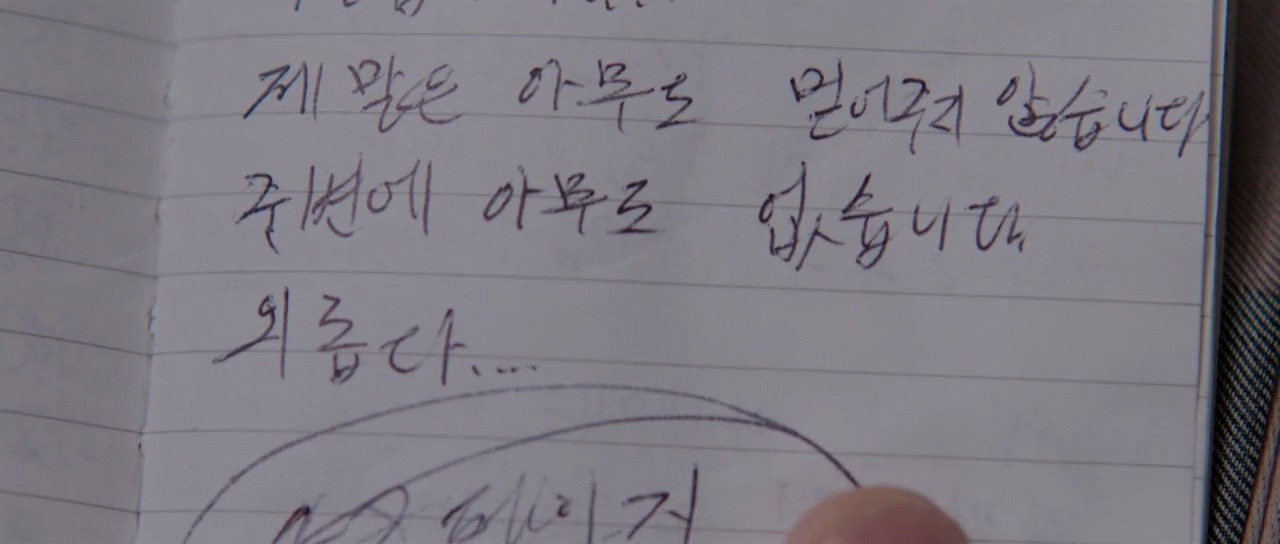 제 말은 아무도 믿어주지 않습니다
주변에 아무도 없습니다.
외롭다....